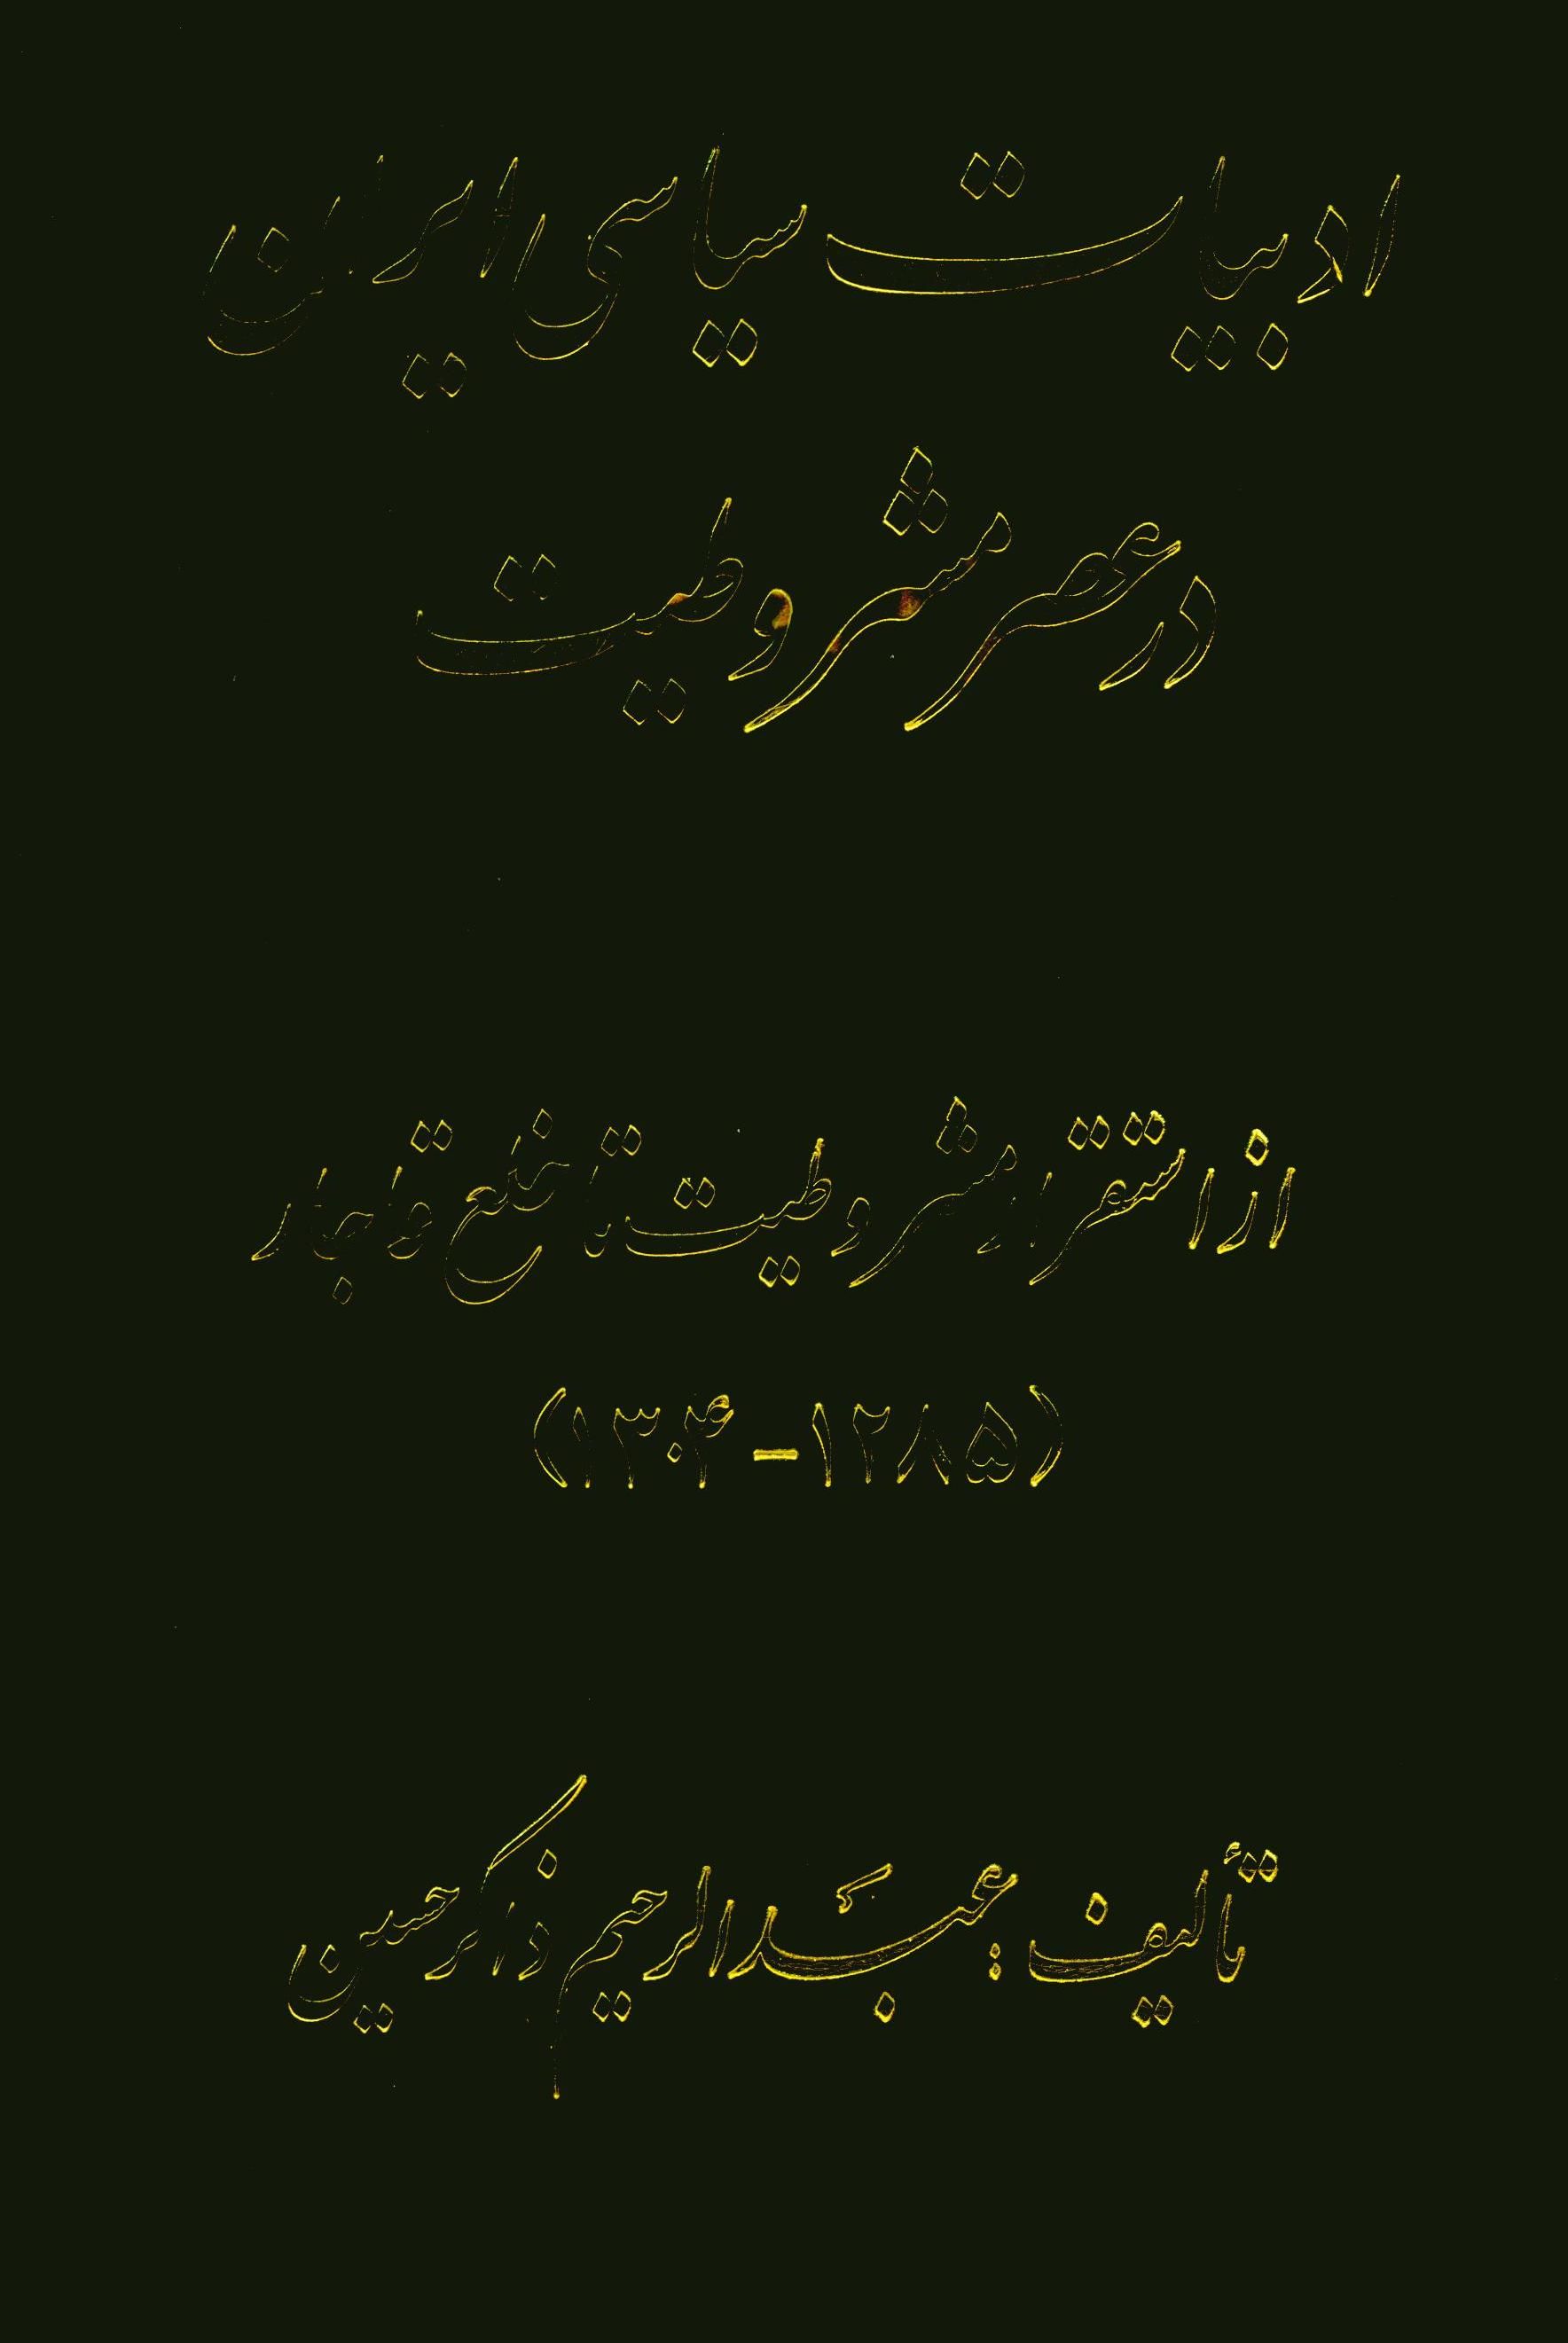 ادبیات سیاسی ایران
در عصر مشروطیت
از استقرار مشروطیت تا خلع قاجار
(۱۲۸۵ - ۱۳۰۴)
تألیف : عبدالرحیم ذاکر حسین